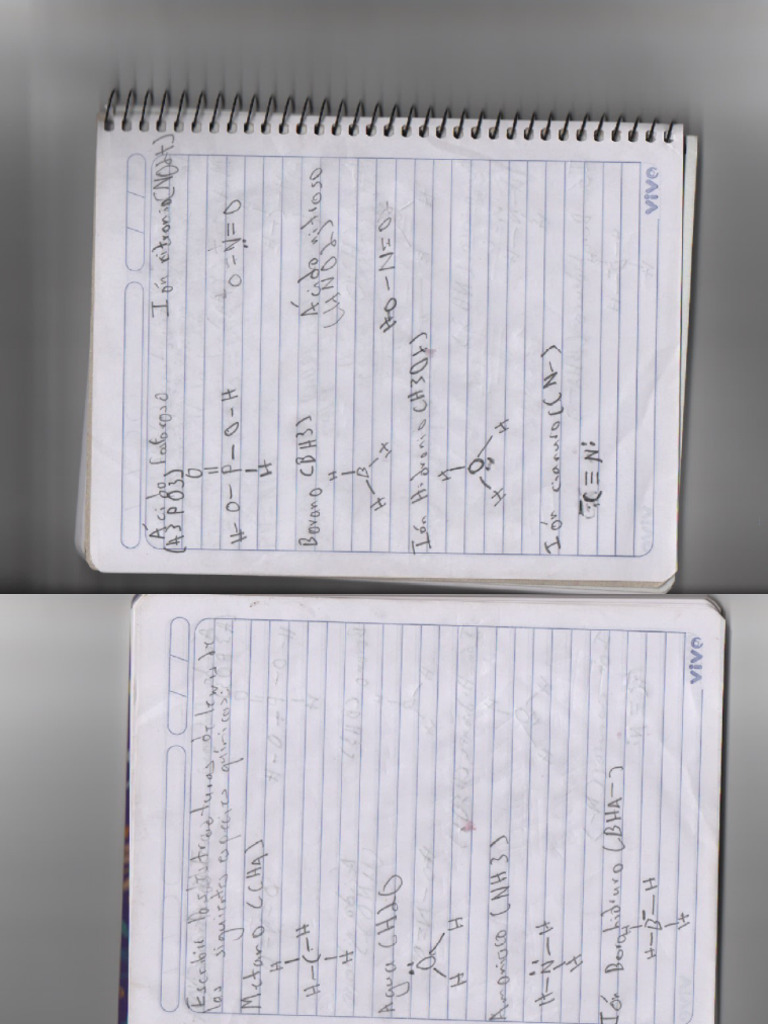 Escribir las estructuras de lewis de
las siguientes especies químicas
Metano (CH4)
H
H-C-H
H
Agua (H2O
O
H H
Amoniaco (NH3)
H-N-H
H
Ión Borohidruro (BH4-)
H
H-B-H
H
vivo
Ácido fosforoso Ión nitronio (NO2+)
(H3PO3)
O
H-O-P-O-H O=N=O
H
Borano (BH3) Ácido nitroso
(HNO2)
H
B
H H
HO-N=O
Ión Hidronio (H3O+)
H
O
H H
Ión cianuro (CN-)
C≡N
vivo